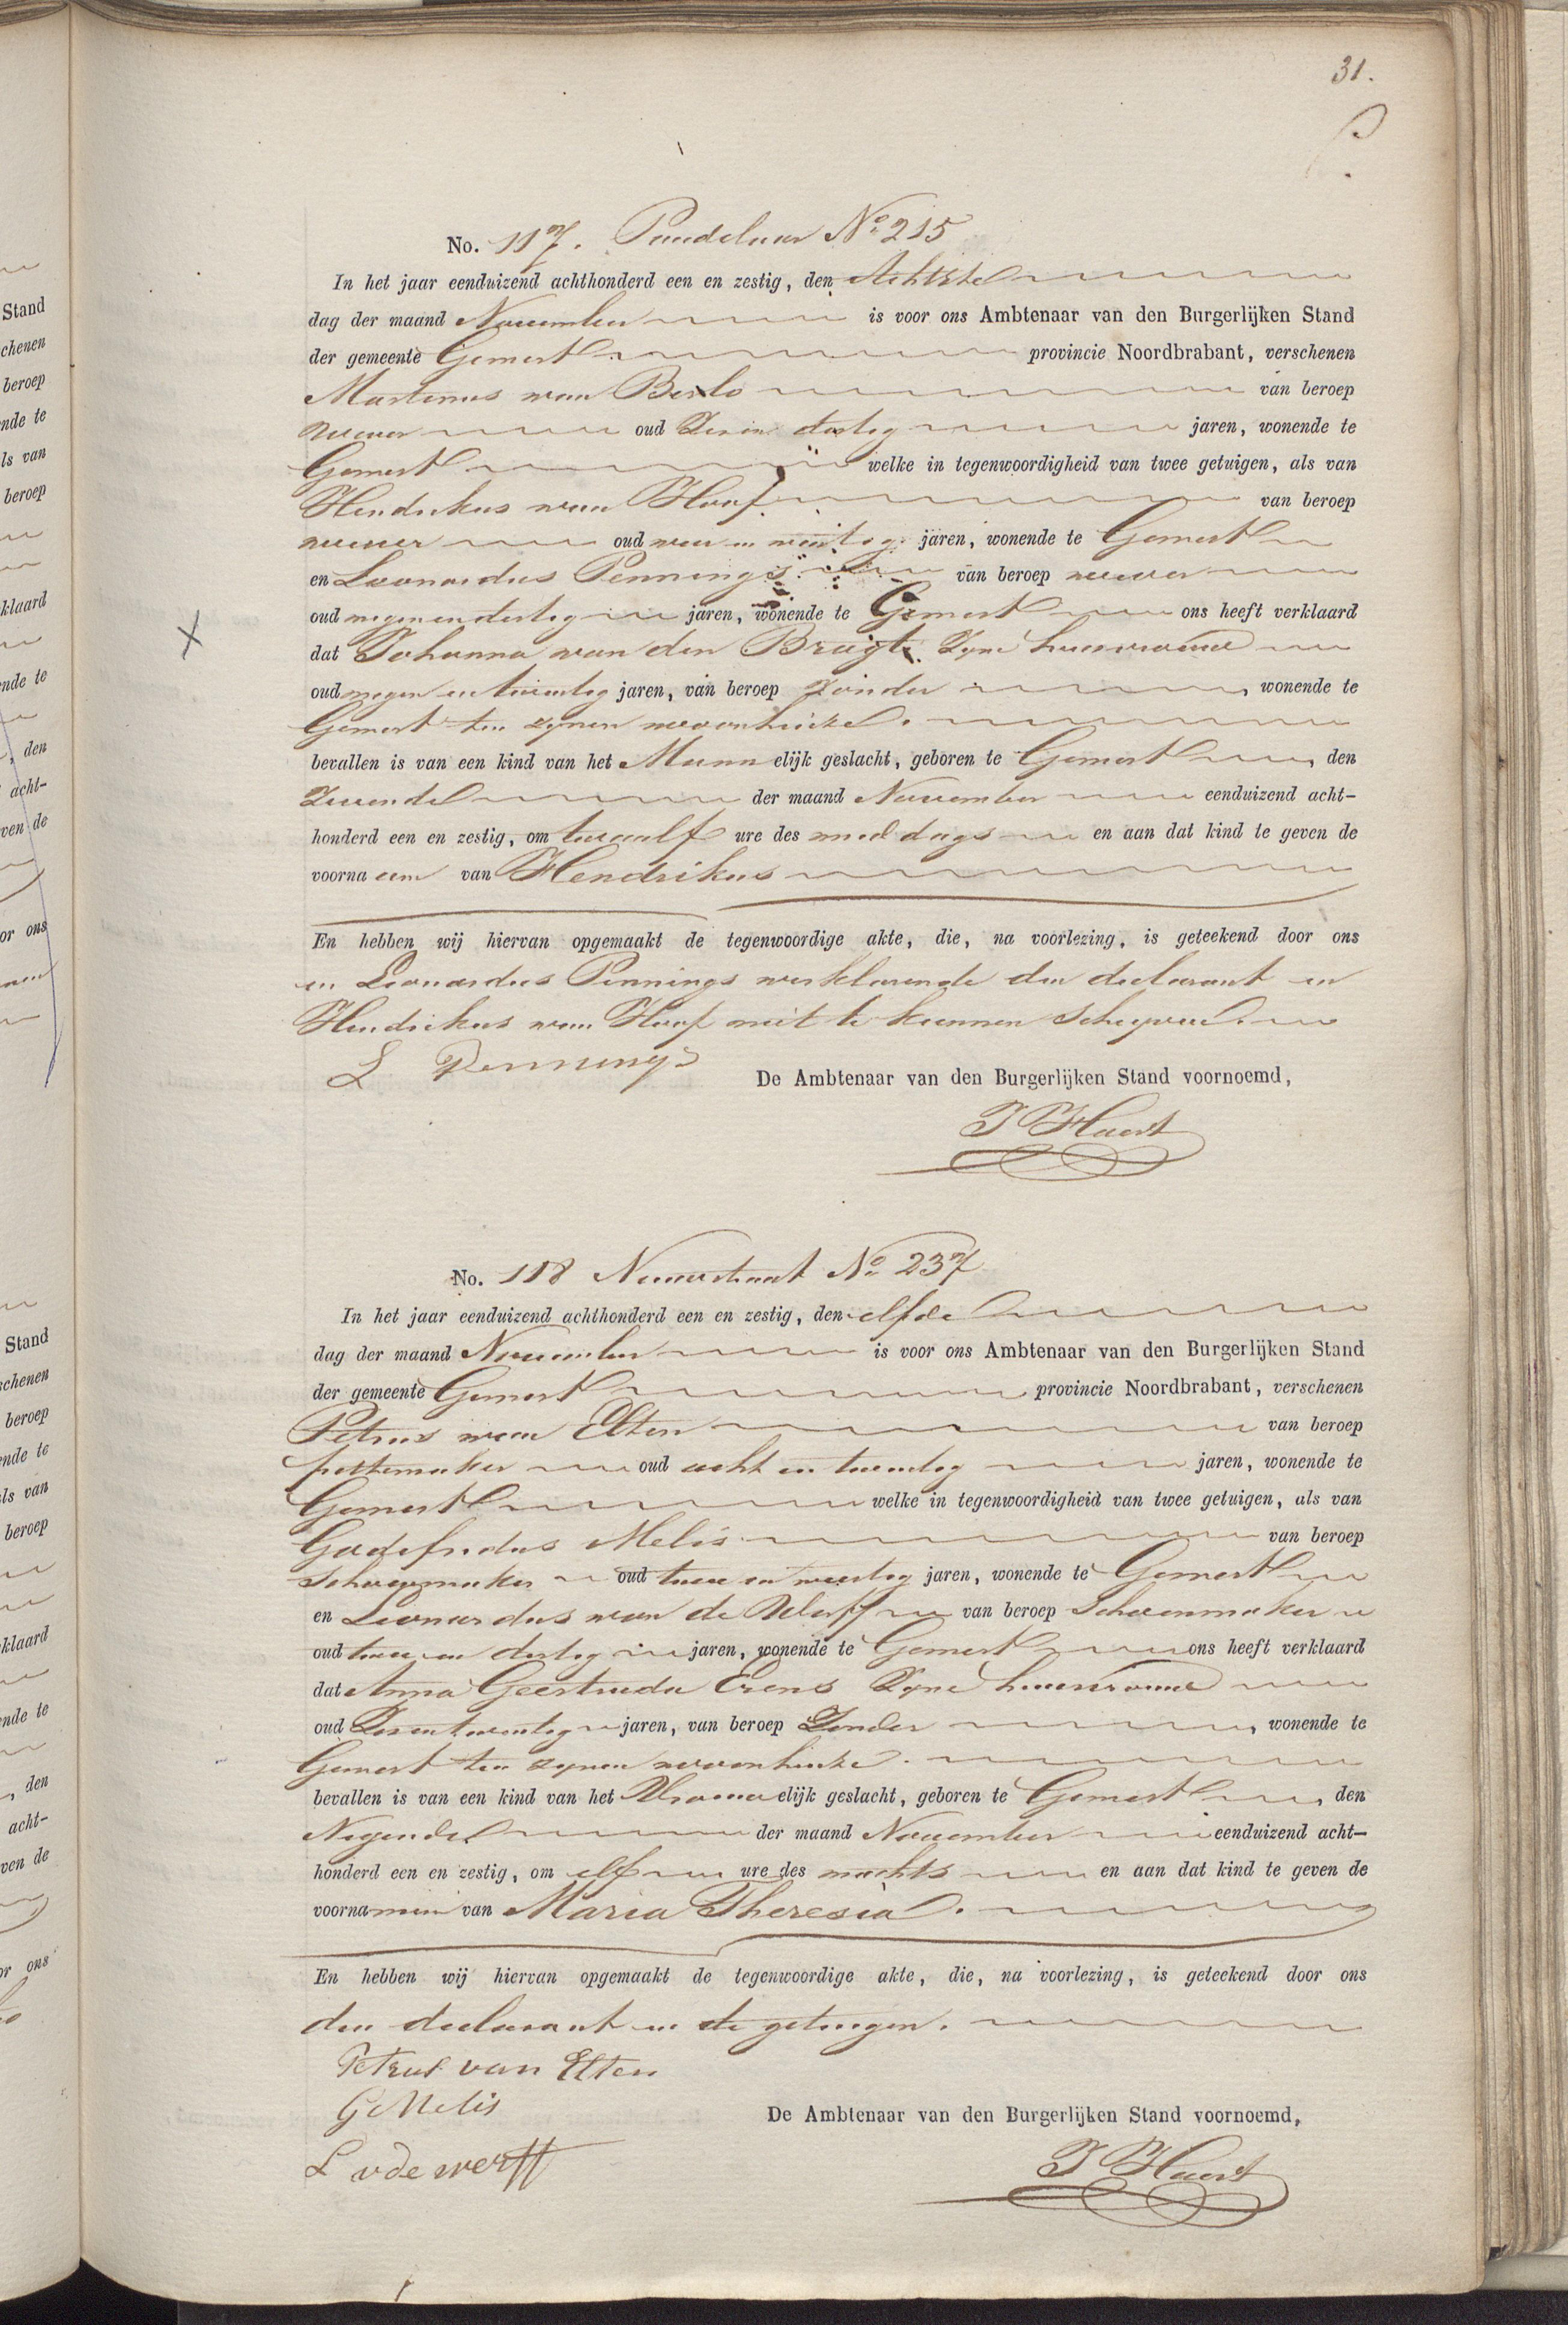 31.
No. 117. Pandelaar No. 215
In het jaar eenduizend achthonderd een en zestig, den Achtste
dag der maand November is voor ons Ambtenaar van den Burgerlijken Stand
der gemeente Gemert provincie Noordbrabant, verschenen
Martinus van Berlo van beroep
wever oud Zes en dertig jaren, wonende te
Gemert welke in tegenwoordigheid van twee getuigen, als van
Hendrikus van Hoof van beroep
wever oud vier en veertig jaren, wonende te Gemert
en Leonardus Pennings van beroep wever
oud negenendertig jaren, wonende te Gemert ons heeft verklaard
dat Johanna van den Bragt Zyne huisvrouw
oud negen en twintig jaren, van beroep Zonder, wonende te
Gemert ten zynen woonhuize.
bevallen is van een kind van het Mannelijk geslacht, geboren te Gemert, den
Zevende der maand November eenduizend acht-
honderd een en zestig, om twaalf ure des middags en aan dat kind te geven de
voornaam van Hendrikus
En hebben wij hiervan opgemaakt de tegenwoordige akte, die, na voorlezing, is geteekend door ons
en Leonardus Pennings verklarende den declarant en
Hendrikus van Hoof niet te kunnen Schryven.
L Pennings
De Ambtenaar van den Burgerlijken Stand voornoemd,
No. 118 Nieuwstraat No. 237
In het jaar eenduizend achthonderd een en zestig, den elfde
dag der maand November is voor ons Ambtenaar van den Burgerlijken Stand
der gemeente Gemert provincie Noordbrabant, verschenen
Petrus van Elten van beroep
pottemaker oud acht en twintig jaren, wonende te
Gemert welke in tegenwoordigheid van twee getuigen, als van
Godefridus Melis van beroep
Schoenmaker oud twee en veertig jaren, wonende te Gemert
en Leonardus van de Werff van beroep Schoenmaker
oud twee en dertig jaren, wonende te Gemert ons heeft verklaard
dat Anna Geertruda Erens Zyne huisvrouw
oud Zesentwintig jaren, van beroep Zonder, wonende te
Gemert ten zynen woonhuize.
bevallen is van een kind van het Vrouwelijk geslacht, geboren te Gemert, den
Negende der maand November eenduizend acht-
honderd een en zestig, om elf ure des nachts en aan dat kind te geven de
voornamen van Maria Theresia.
En hebben wij hiervan opgemaakt de tegenwoordige akte, die, na voorlezing, is geteekend door ons
den declarant en de getuigen.
Petrus van Elten
G Melis
De Ambtenaar van den Burgerlijken Stand voornoemd,
L v de werff